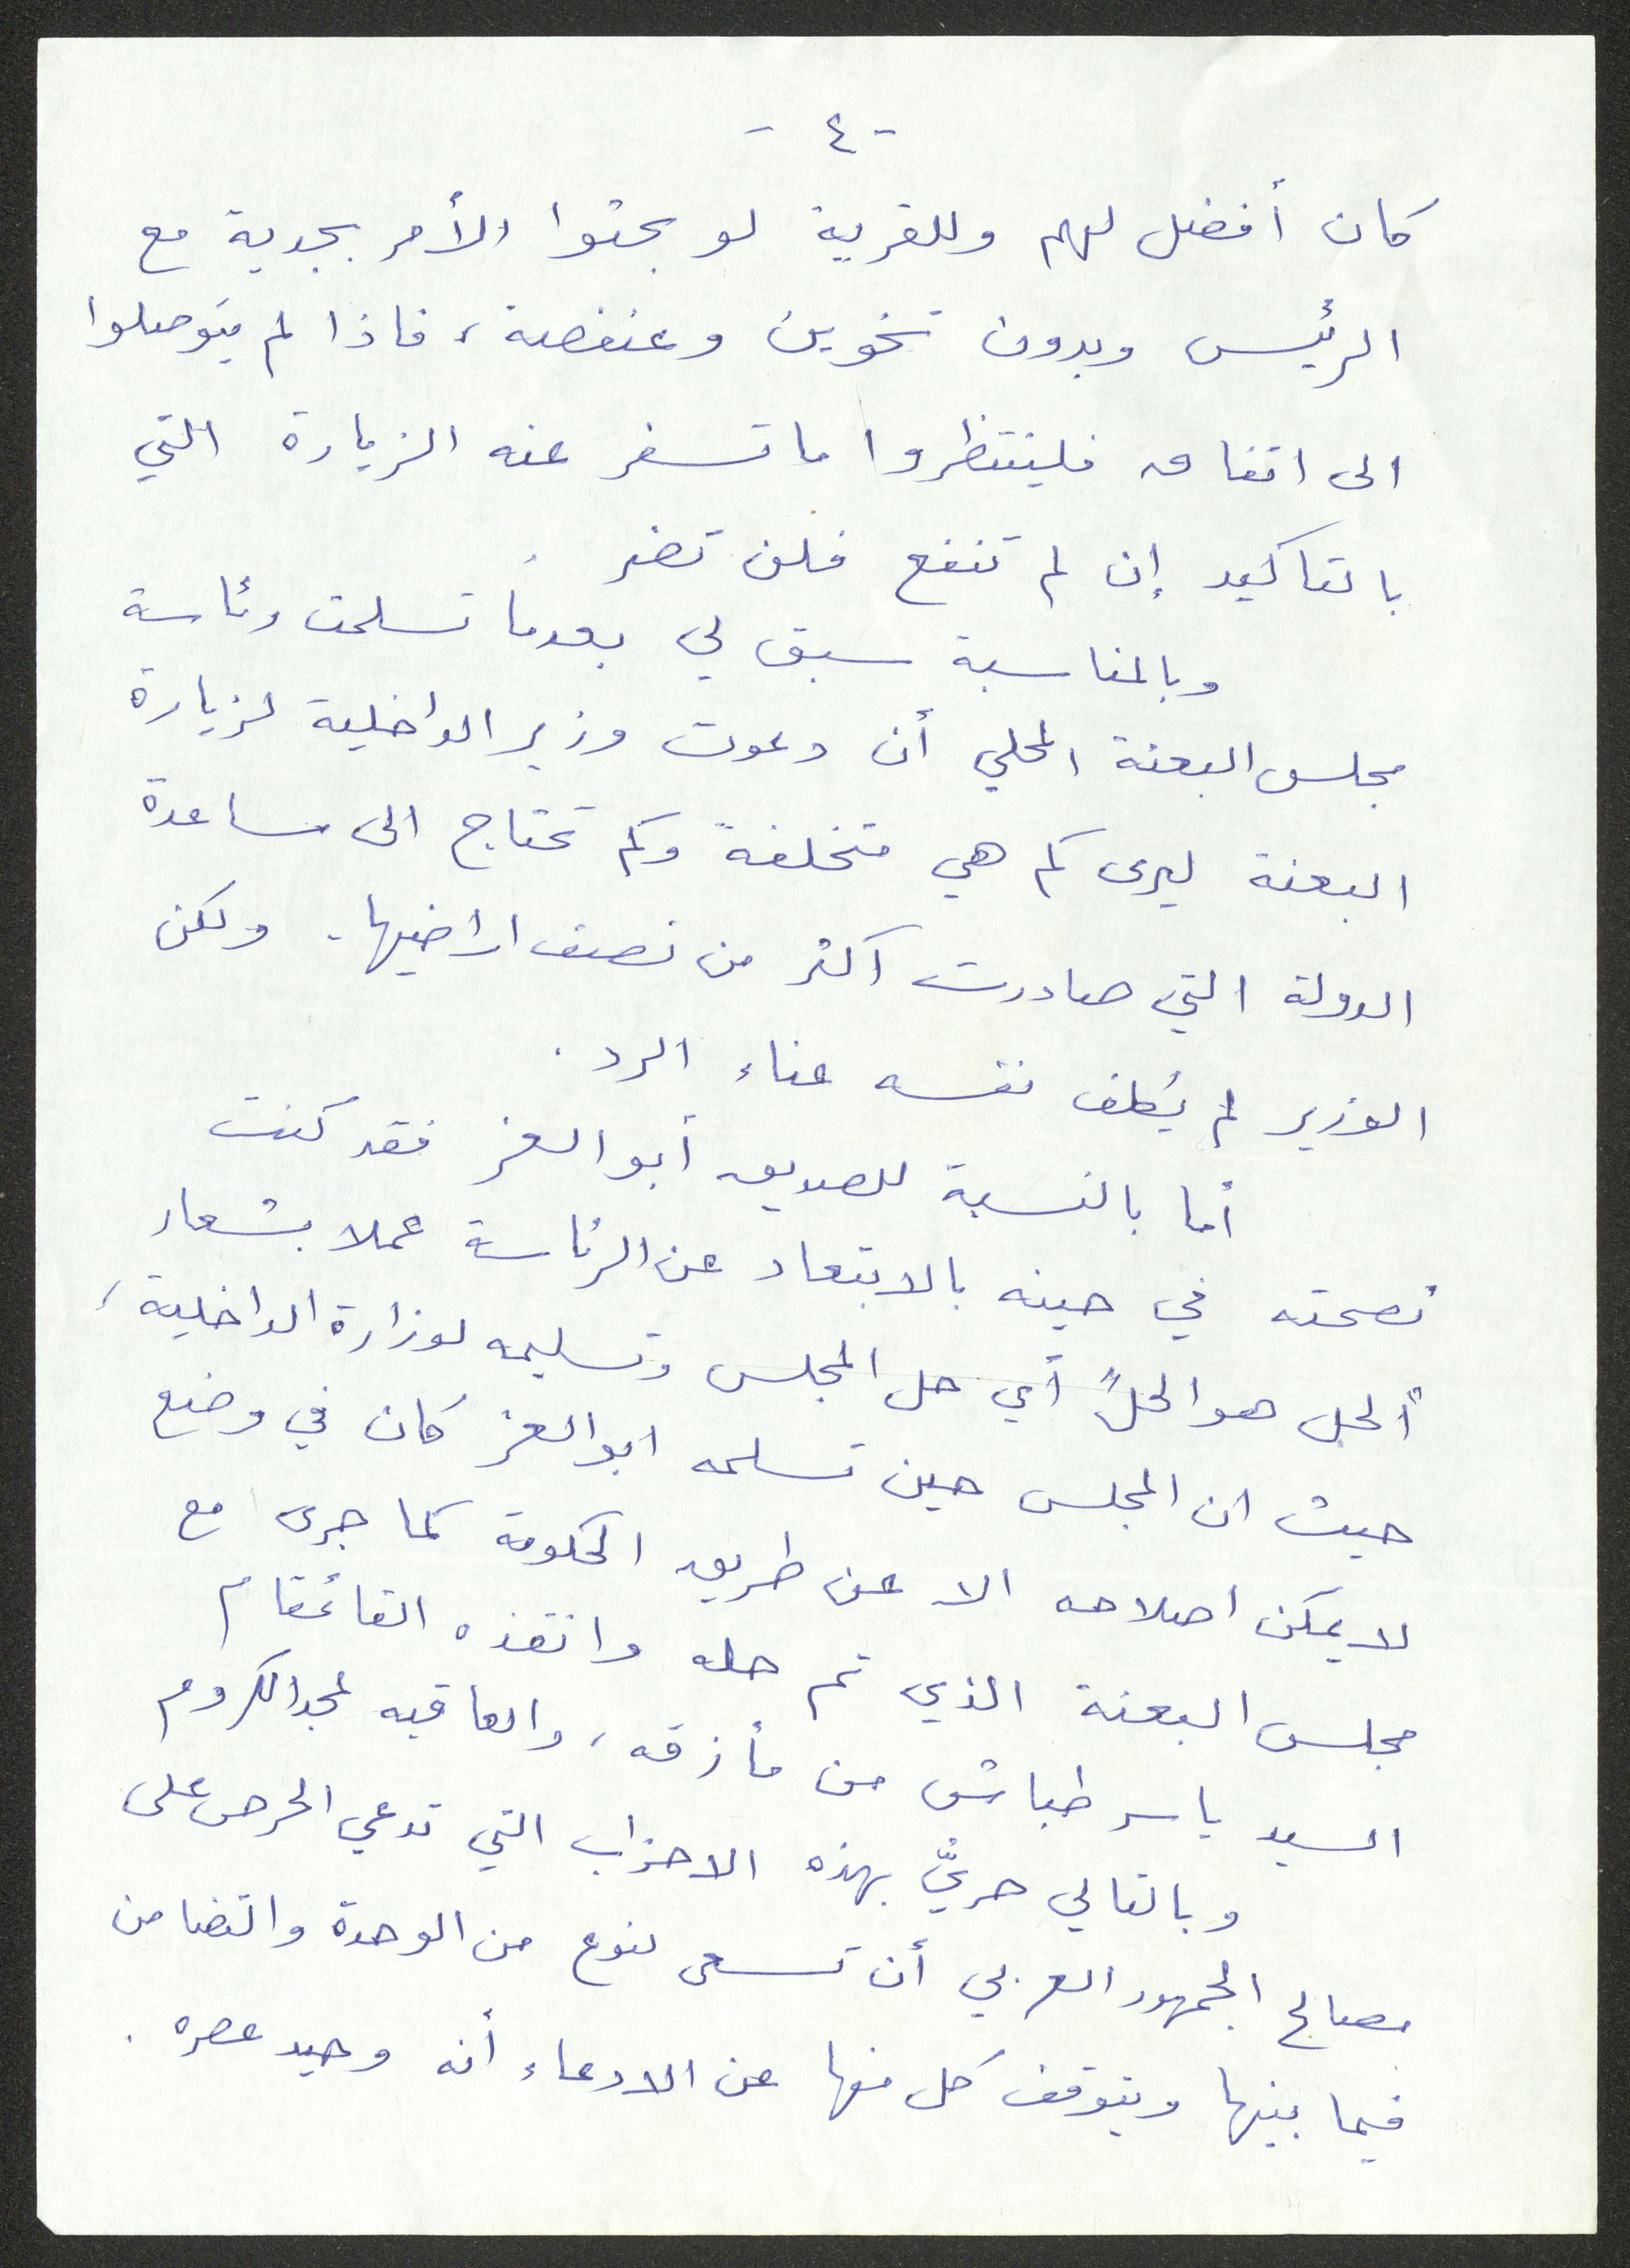 - ٤ -
كان أفضل لهم وللقرية لو بحثوا الأمر بجدية مع
الرئيس وبدون تخوين وعنفصة، فاذا لم يتوصلوا
الى اتفاق فلينتظروا ما تسفر عنه الزيارة التي
بالتاكيد إن لم تنفع فلن تضر.
وبالمناسبة سبق لي بعدما تسلمت رئاسة
مجلس البعنة المحلي أن دعوت وزير الداخلية لزيارة
البعنة ليرى كم هي متخلفة وكم تحتاج الى مساعدة
الدولة التي صادرت اكثر من نصف اراضيها. ولكن
الوزير لم يُكلف نفسه عناء الرد.
أما بالنسبة للصديق أبو العز فقد كنت
نصحته في حينه بالابتعاد عن الرئاسة عملا بشعار
"ألحل هو الحل" أي حل المجلس وتسليمه لوزارة الداخلية،
حيث ان المجلس حين تسلمه ابو العز كان في وضع
لا يمكن اصلاحه الا عن طريق الحكومة كما جرى مع
مجلس البعنة الذي تم حله وانقذه القائمقام
السيد ياسر طباش من مأزقه، والعاقبه لمجد الكروم
وبالتالي حريٌّ بهذه الاحزاب التي تدعي الحرص على
مصالح الجمهور العربي أن تسعى لنوع من الوحدة والتضامن
فيما بينها ويتوقف كل منها عن الادعاء أنه وحيد عصره.